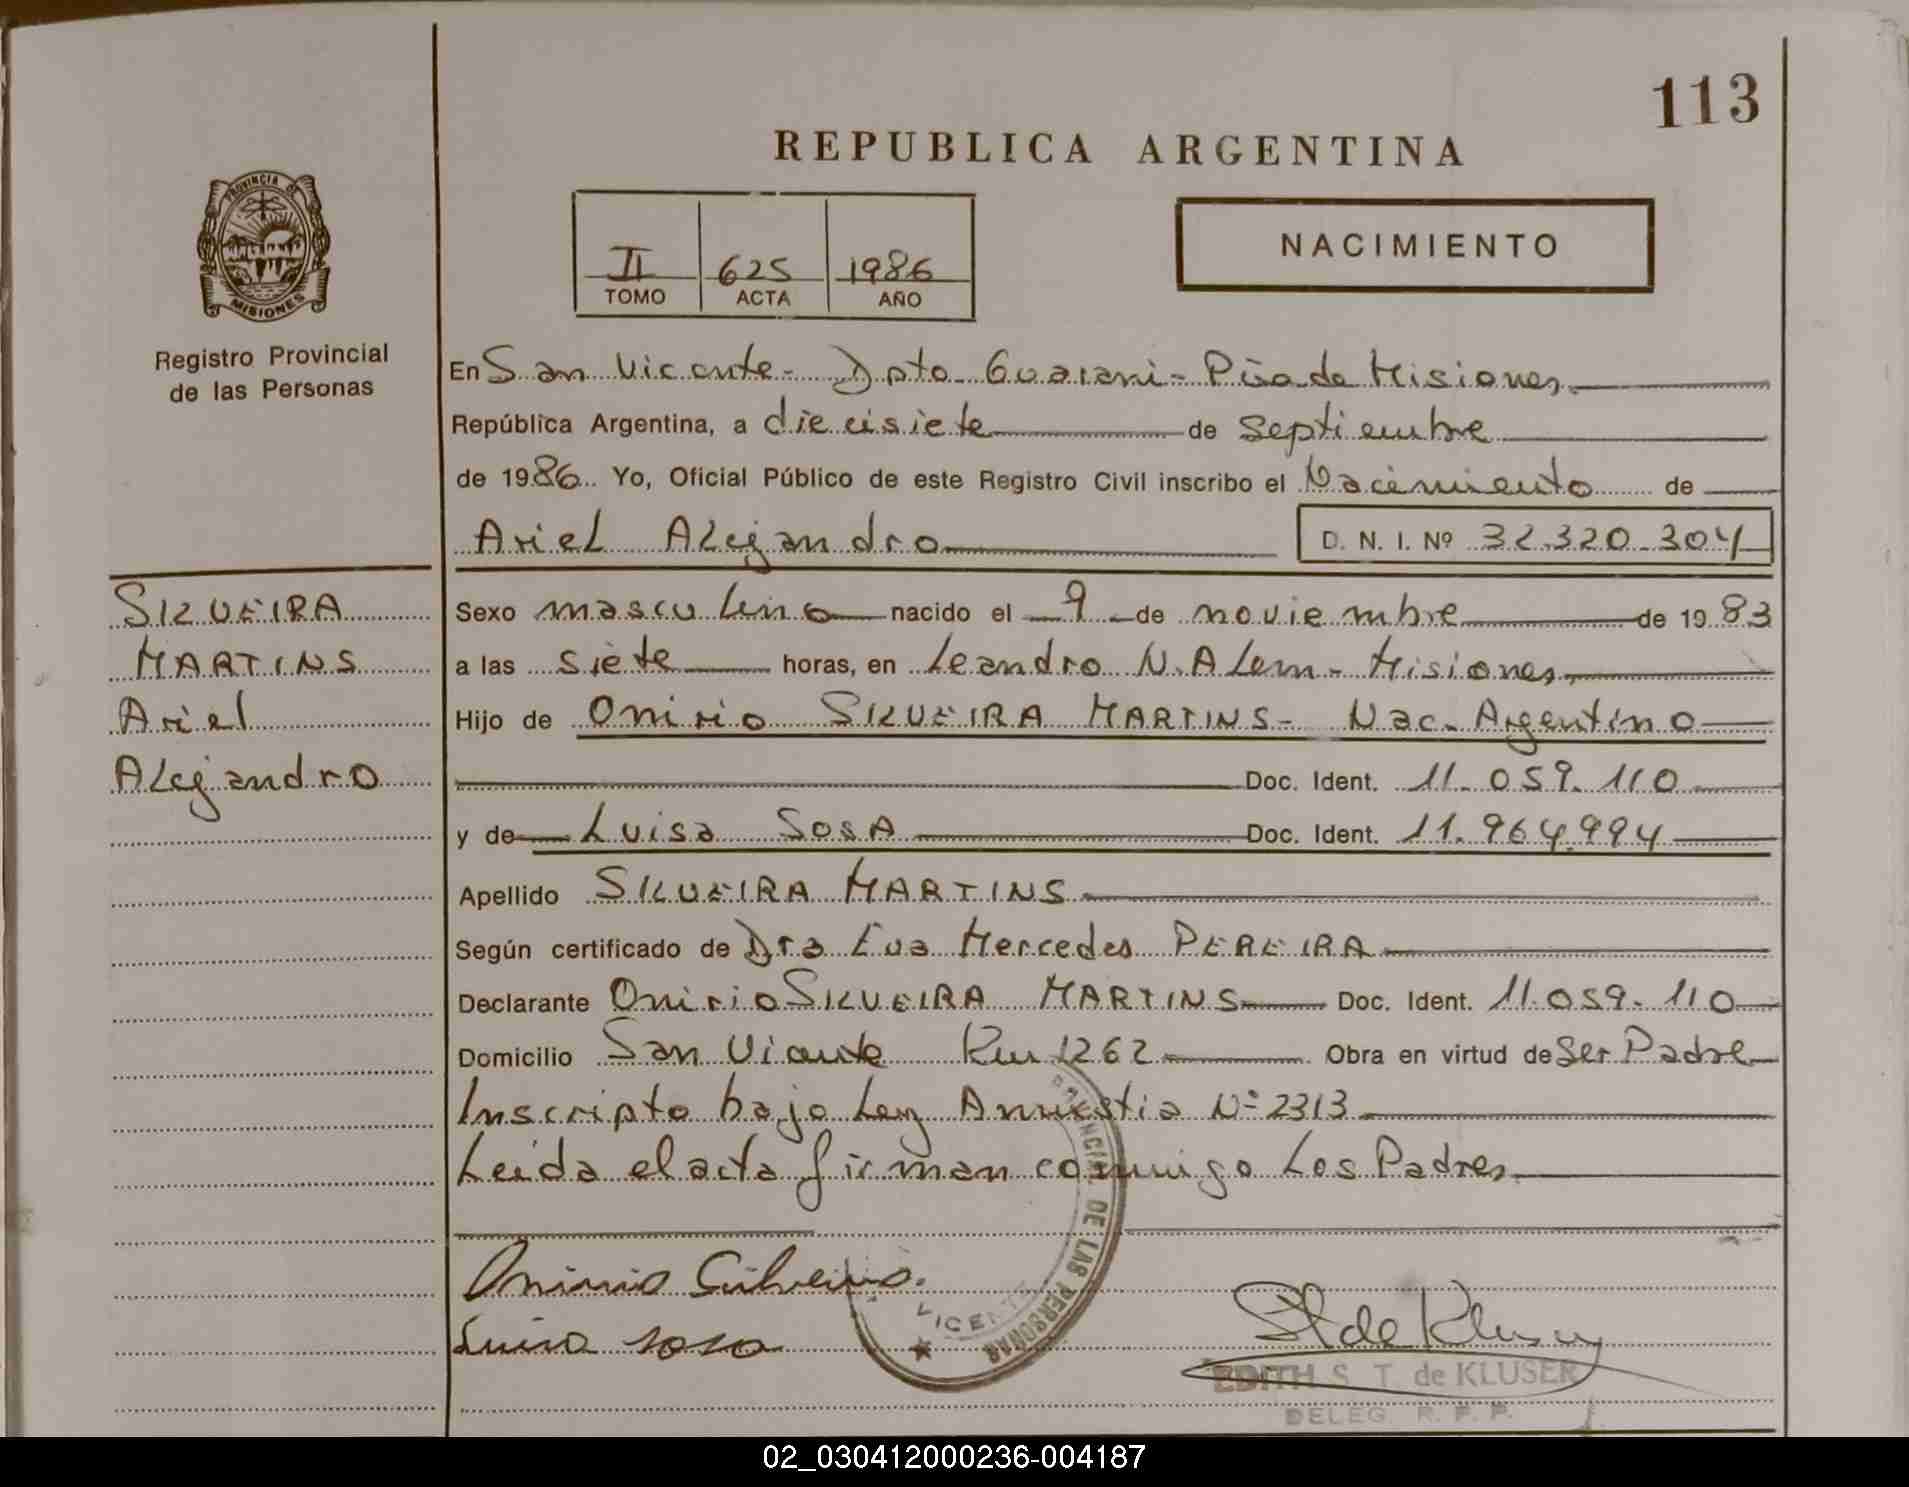 113
REPUBLICA ARGENTINA
PROVINCIA DE
MISIONES
Registro Provincial
de las Personas
II 625 1986
TOMO ACTA AÑO
NACIMIENTO
En San Vicente - Dpto Guarani - Pcia de Misiones
República Argentina, a diecisiete de septiembre
de 1986. Yo, Oficial Público de este Registro Civil inscribo el Nacimiento de
Ariel Alejandro D. N. I. Nº 32.320.304
SILVEIRA
MARTINS
Ariel
Alejandro
Sexo masculino nacido el 9 de noviembre de 1983
a las siete horas, en Leandro N. Alem - Misiones
Hijo de Onirio SILVEIRA MARTINS - Nac. Argentino
Doc. Ident. 11.059.110
y de Luisa SOSA Doc. Ident. 11.964.994
Apellido SILVEIRA MARTINS
Según certificado de Dra Eva Mercedes PEREIRA
Declarante Onirio SILVEIRA MARTINS Doc. Ident. 11.059.110
Domicilio San Vicente Km 1262 Obra en virtud de Ser Padre
Inscripto bajo Ley Amnistia Nº 2313
Leida el acta firman conmigo Los Padres
DE LAS PERSONAS
VICENTE
Onirio Silveira.
Luisa sosa
EDITH S. T. de KLUSER
DELEG. R. P. P.
02_030412000236-004187